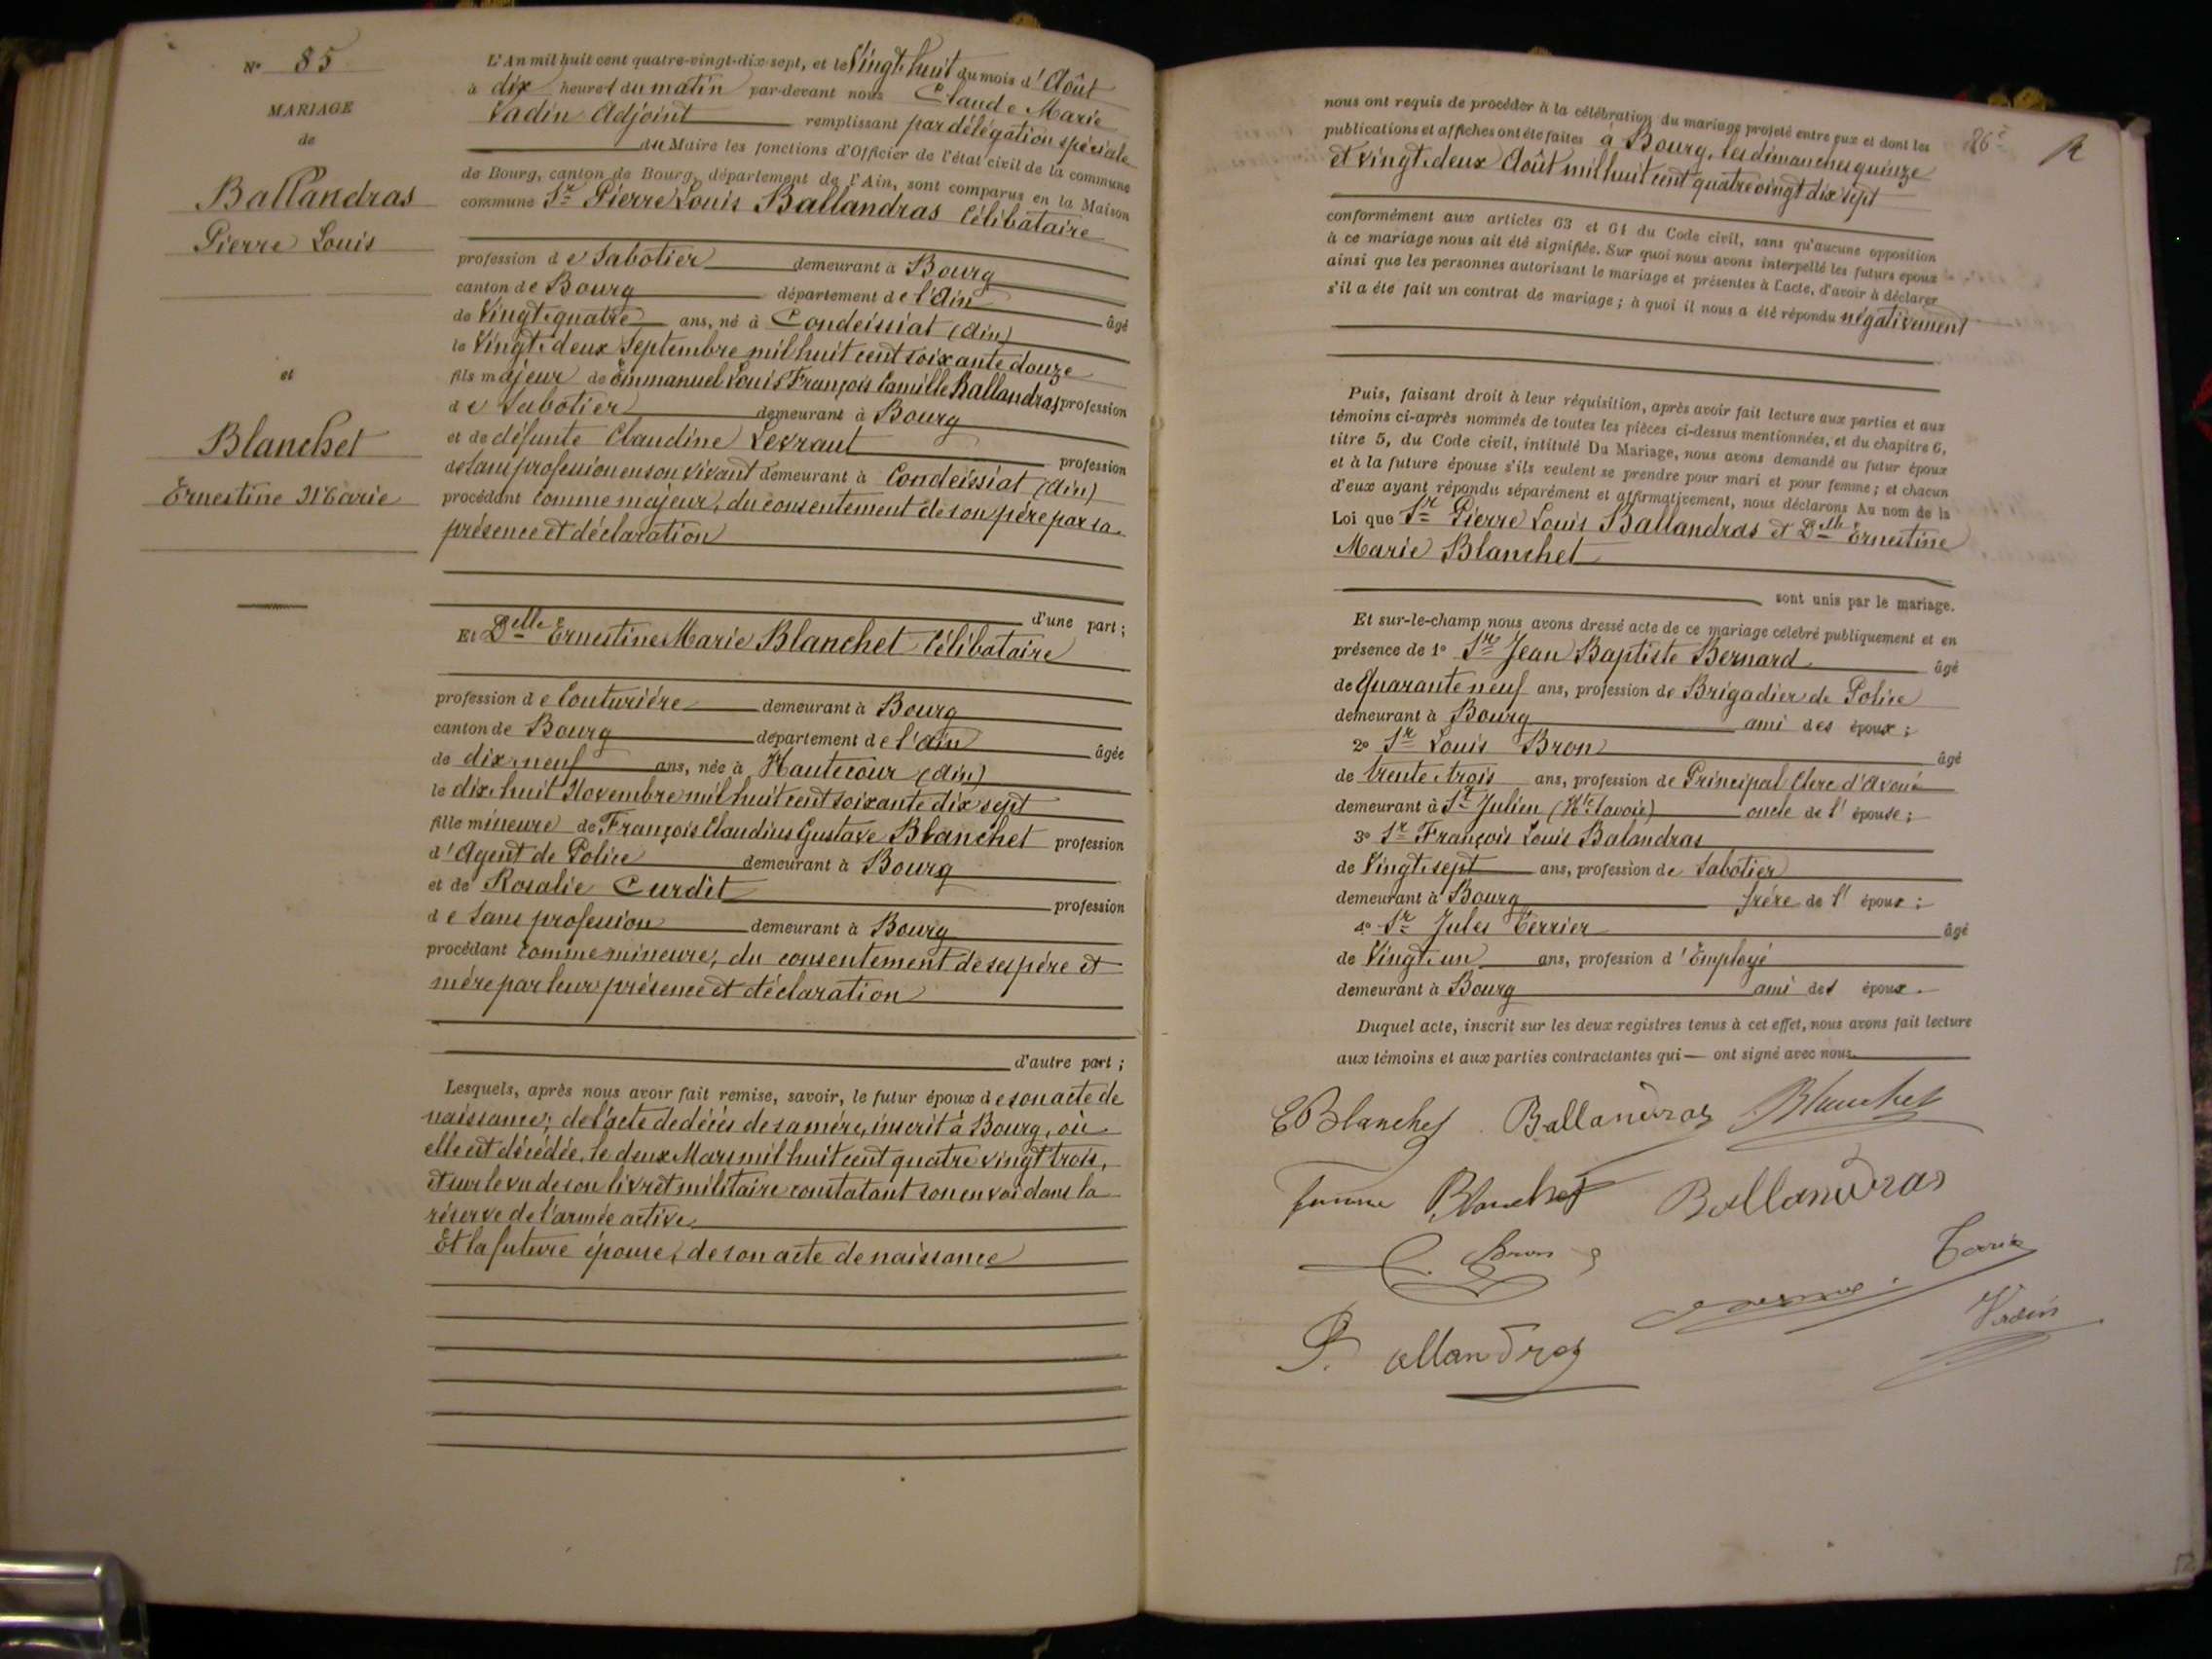 N° 85
MARIAGE
de
Ballandras
Pierre Louis
et
Blanchet
Ernestine Marie
L'An mil huit cent quatre-vingt-dix-sept, et le Vingt-huit du mois d'Août
à dix heures du matin par-devant nous Claude Marie
Vadin Adjoint remplissant par délégation spéciale
du Maire les fonctions d'Officier de l'état civil de la commune
de Bourg, canton de Bourg, département de l'Ain, sont comparus en la Maison
commune Sr Pierre Louis Ballandras Célibataire
profession de Sabotier demeurant à Bourg
canton de Bourg département de l'Ain âgé
de Vingt-quatre ans, né à Condeissiat (Ain)
le Vingt-deux Septembre mil huit cent soixante douze
fils majeur de Emmanuel Louis François Camille Ballandras profession
de Sabotier demeurant à Bourg
et de défunte Claudine Levraut profession
de sans profession en son vivant demeurant à Condeissiat (Ain)
procédant comme majeur, du consentement de son père par sa
présence et déclaration
d'une part;
Et Delle Ernestine Marie Blanchet Célibataire
profession de Couturière demeurant à Bourg
canton de Bourg département de l'Ain âgée
de dix-neuf ans, née à Hautecour (Ain)
le dix-huit Novembre mil huit cent soixante dix sept
fille mineure de François Claudius Gustave Blanchet profession
d'Agent de Police demeurant à Bourg
et de Rosalie Curdit profession
de Sans profession demeurant à Bourg
procédant comme mineure, du consentement de ses père et
mère par leur présence et déclaration
d'autre part;
Lesquels, après nous avoir fait remise, savoir, le futur époux de son acte de
naissance; de l'acte de décès de sa mère, inscrit à Bourg, où
elle est décédée, le deux Mars mil huit cent quatre vingt trois,
et sur le vu de son livret militaire constatant son envoi dans la
réserve de l'armée active
Et la future épouse, de son acte de naissance
86e
R
nous ont requis de procéder à la célébration du mariage projeté entre eux et dont les
publications et affiches ont été faites à Bourg, les dimanches quinze
et vingt-deux Août mil huit cent quatre vingt dix sept
conformément aux articles 63 et 64 du Code civil, sans qu'aucune opposition
à ce mariage nous ait été signifiée. Sur quoi nous avons interpellé les futurs époux
ainsi que les personnes autorisant le mariage et présentes à l'acte, d'avoir à déclarer
s'il a été fait un contrat de mariage; à quoi il nous a été répondu négativement
Puis, faisant droit à leur réquisition, après avoir fait lecture aux parties et aux
témoins ci-après nommés de toutes les pièces ci-dessus mentionnées, et du chapitre 6,
titre 5, du Code civil, intitulé Du Mariage, nous avons demandé au futur époux
et à la future épouse s'ils veulent se prendre pour mari et pour femme; et chacun
d'eux ayant répondu séparément et affirmativement, nous déclarons Au nom de la
Loi que Sr Pierre Louis Ballandras et Delle Ernestine
Marie Blanchet
sont unis par le mariage.
Et sur-le-champ nous avons dressé acte de ce mariage célébré publiquement et en
présence de 1° Sr Jean Baptiste Bernard âgé
de Quarante neuf ans, profession de Brigadier de Police
demeurant à Bourg ami des époux;
2° Sr Louis Bron âgé
de trente-trois ans, profession de Principal Clerc d'Avoué
demeurant à St Julien (Hte Savoie) oncle de l'épouse;
3° Sr François Louis Balandras
de Vingt-sept ans, profession de Sabotier
demeurant à Bourg frère de l'époux;
4° Sr Jules Terrier âgé
de Vingt-un ans, profession d'Employé
demeurant à Bourg ami des époux.
Duquel acte, inscrit sur les deux registres tenus à cet effet, nous avons fait lecture
aux témoins et aux parties contractantes qui — ont signé avec nous.
E Blanchet Ballandras Blanchet
femme Blanchet Ballandras
L. Bron
Vadin